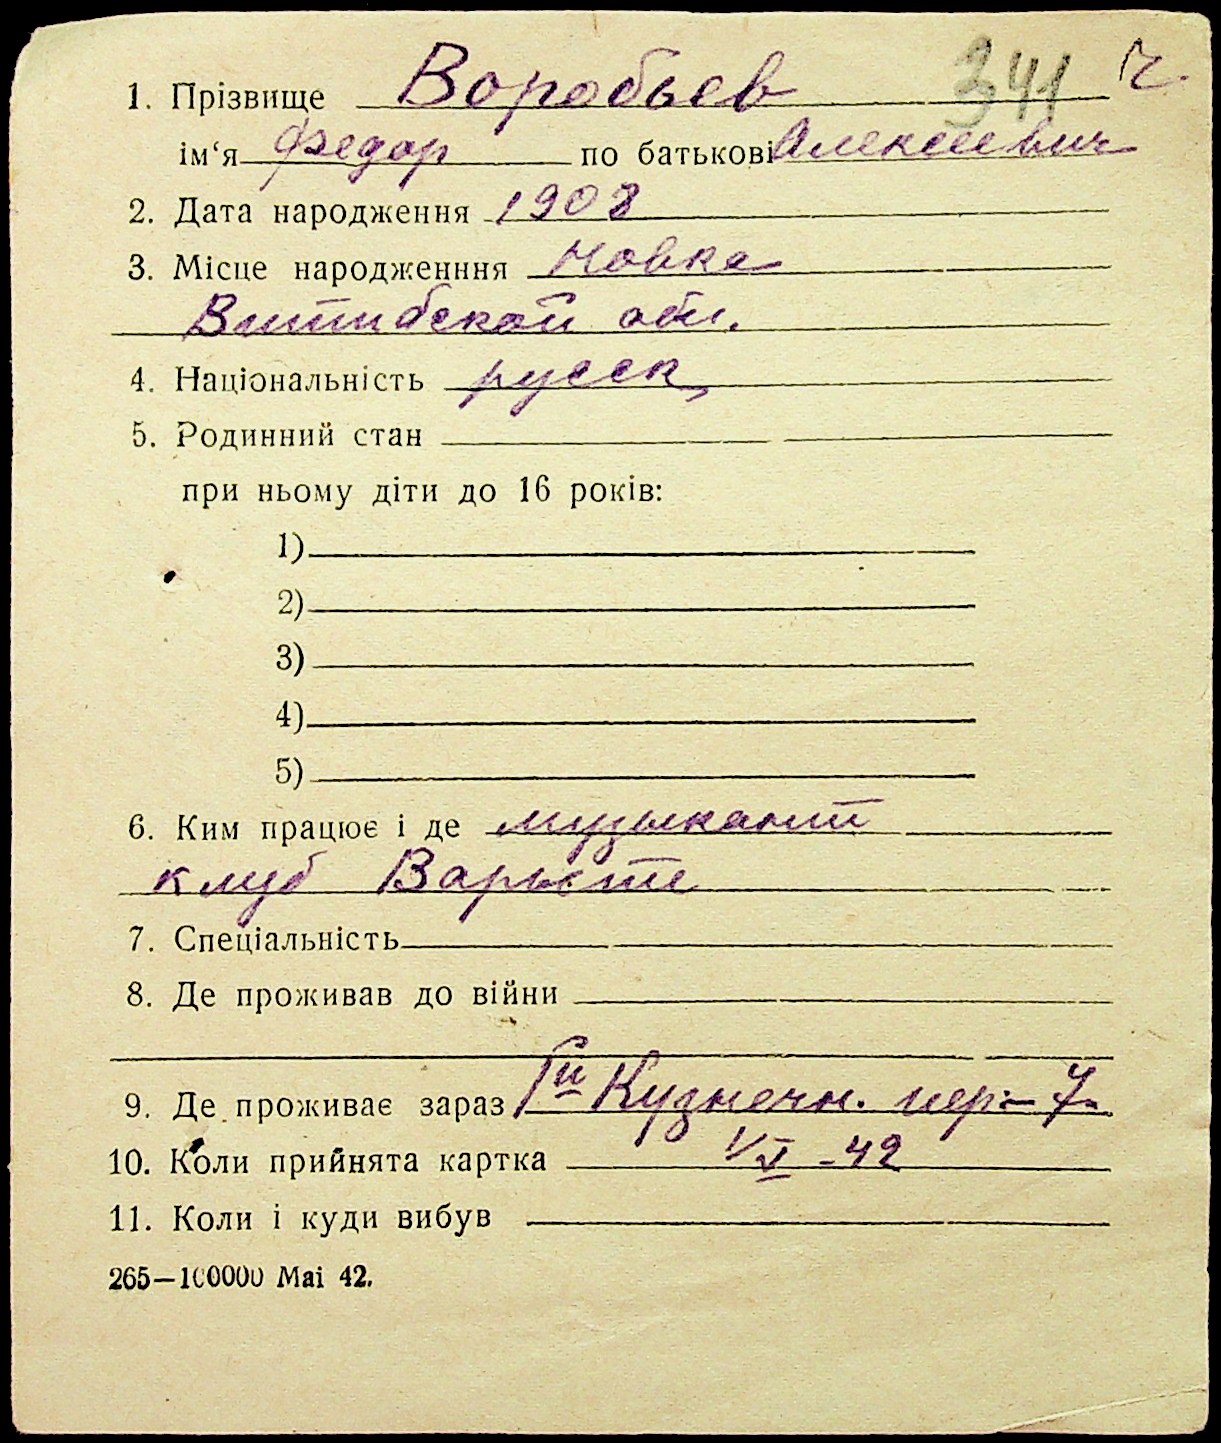 341 ч
1. Прізвище Воробьев
ім‘я Федор по батькові Алексеевич
2. Дата народження 1908
3. Місце народженння Новка
Витибской обл.
4. Національність русск
5. Родинний стан
при ньому діти до 16 років:
1)
2)
3)
4)
5)
6. Ким працює і де музыкант
клуб Варьете
7. Спеціальність
8. Де проживав до війни
9. Де проживає зараз Iй Кузнечн. пер - 7
10. Коли прийнята картка 1/V - 42
11. Коли і куди вибув
265—100000 Mai 42.